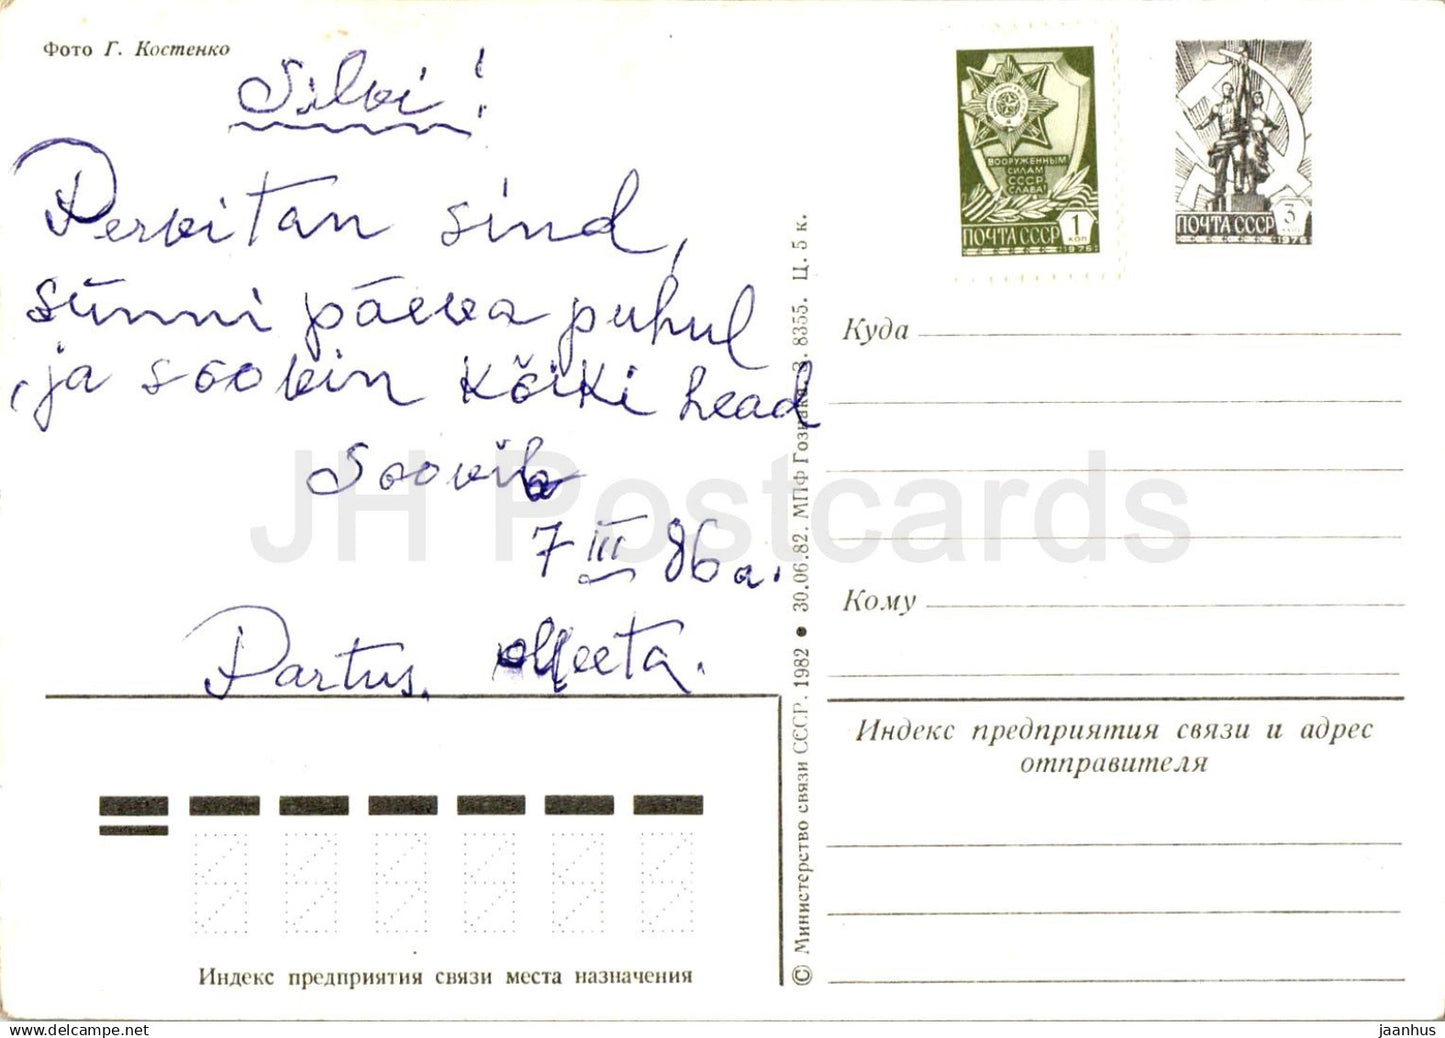 Фото Г. Костенко
Silvi!
Pervitan sind,
sünni päeva puhul
ja soovin kõiki head
Soovib
7 III 86 a.
Partus, Meeta.
ВООРУЖЕННЫМ
СИЛАМ
СССР
СЛАВА!
ПОЧТА СССР 1
КОП
1976
ПОЧТА СССР 3
КОП
1976
Куда
Кому
Индекс предприятия связи и адрес
отправителя
Индекс предприятия связи места назначения
© Министерство связи СССР. 1982 ● 30.06.82. МПФ Гознака. З. 8355. Ц. 5 к.
JH Postcards
https://www.hippostcard.com
jaanhus